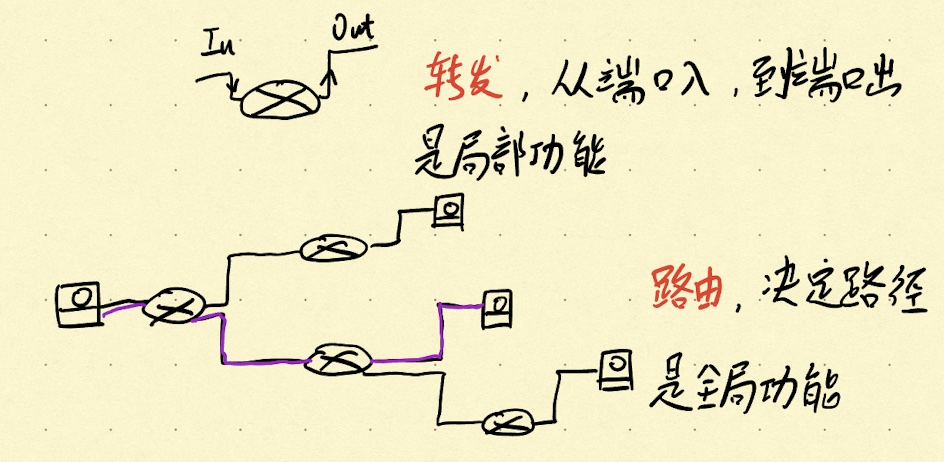 In
Out
转发，从端口入，到端口出
是局部功能
路由，决定路径
是全局功能